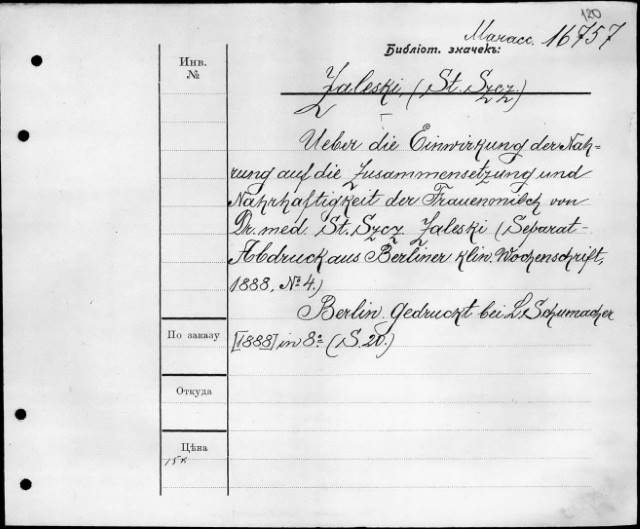 120
Магасс. 16757
Библіот. значекъ:
Инв.
№
Zaleski, (St. Szcz.)
Ueber die Einwirkung der Nah-
rung auf die Zusammensetzung und
Nahrhaftigkeit der Frauenmilch von
Dr. med. St. Szcz. Zaleski (Separat-
Abdruck aus Berliner klin. Wochenschrift,
1888, № 4.)
Berlin. Gedruckt bei L. Schumacher
[1888] in 8º (S. 20.)
По заказу
Откуда
Цѣна
15к